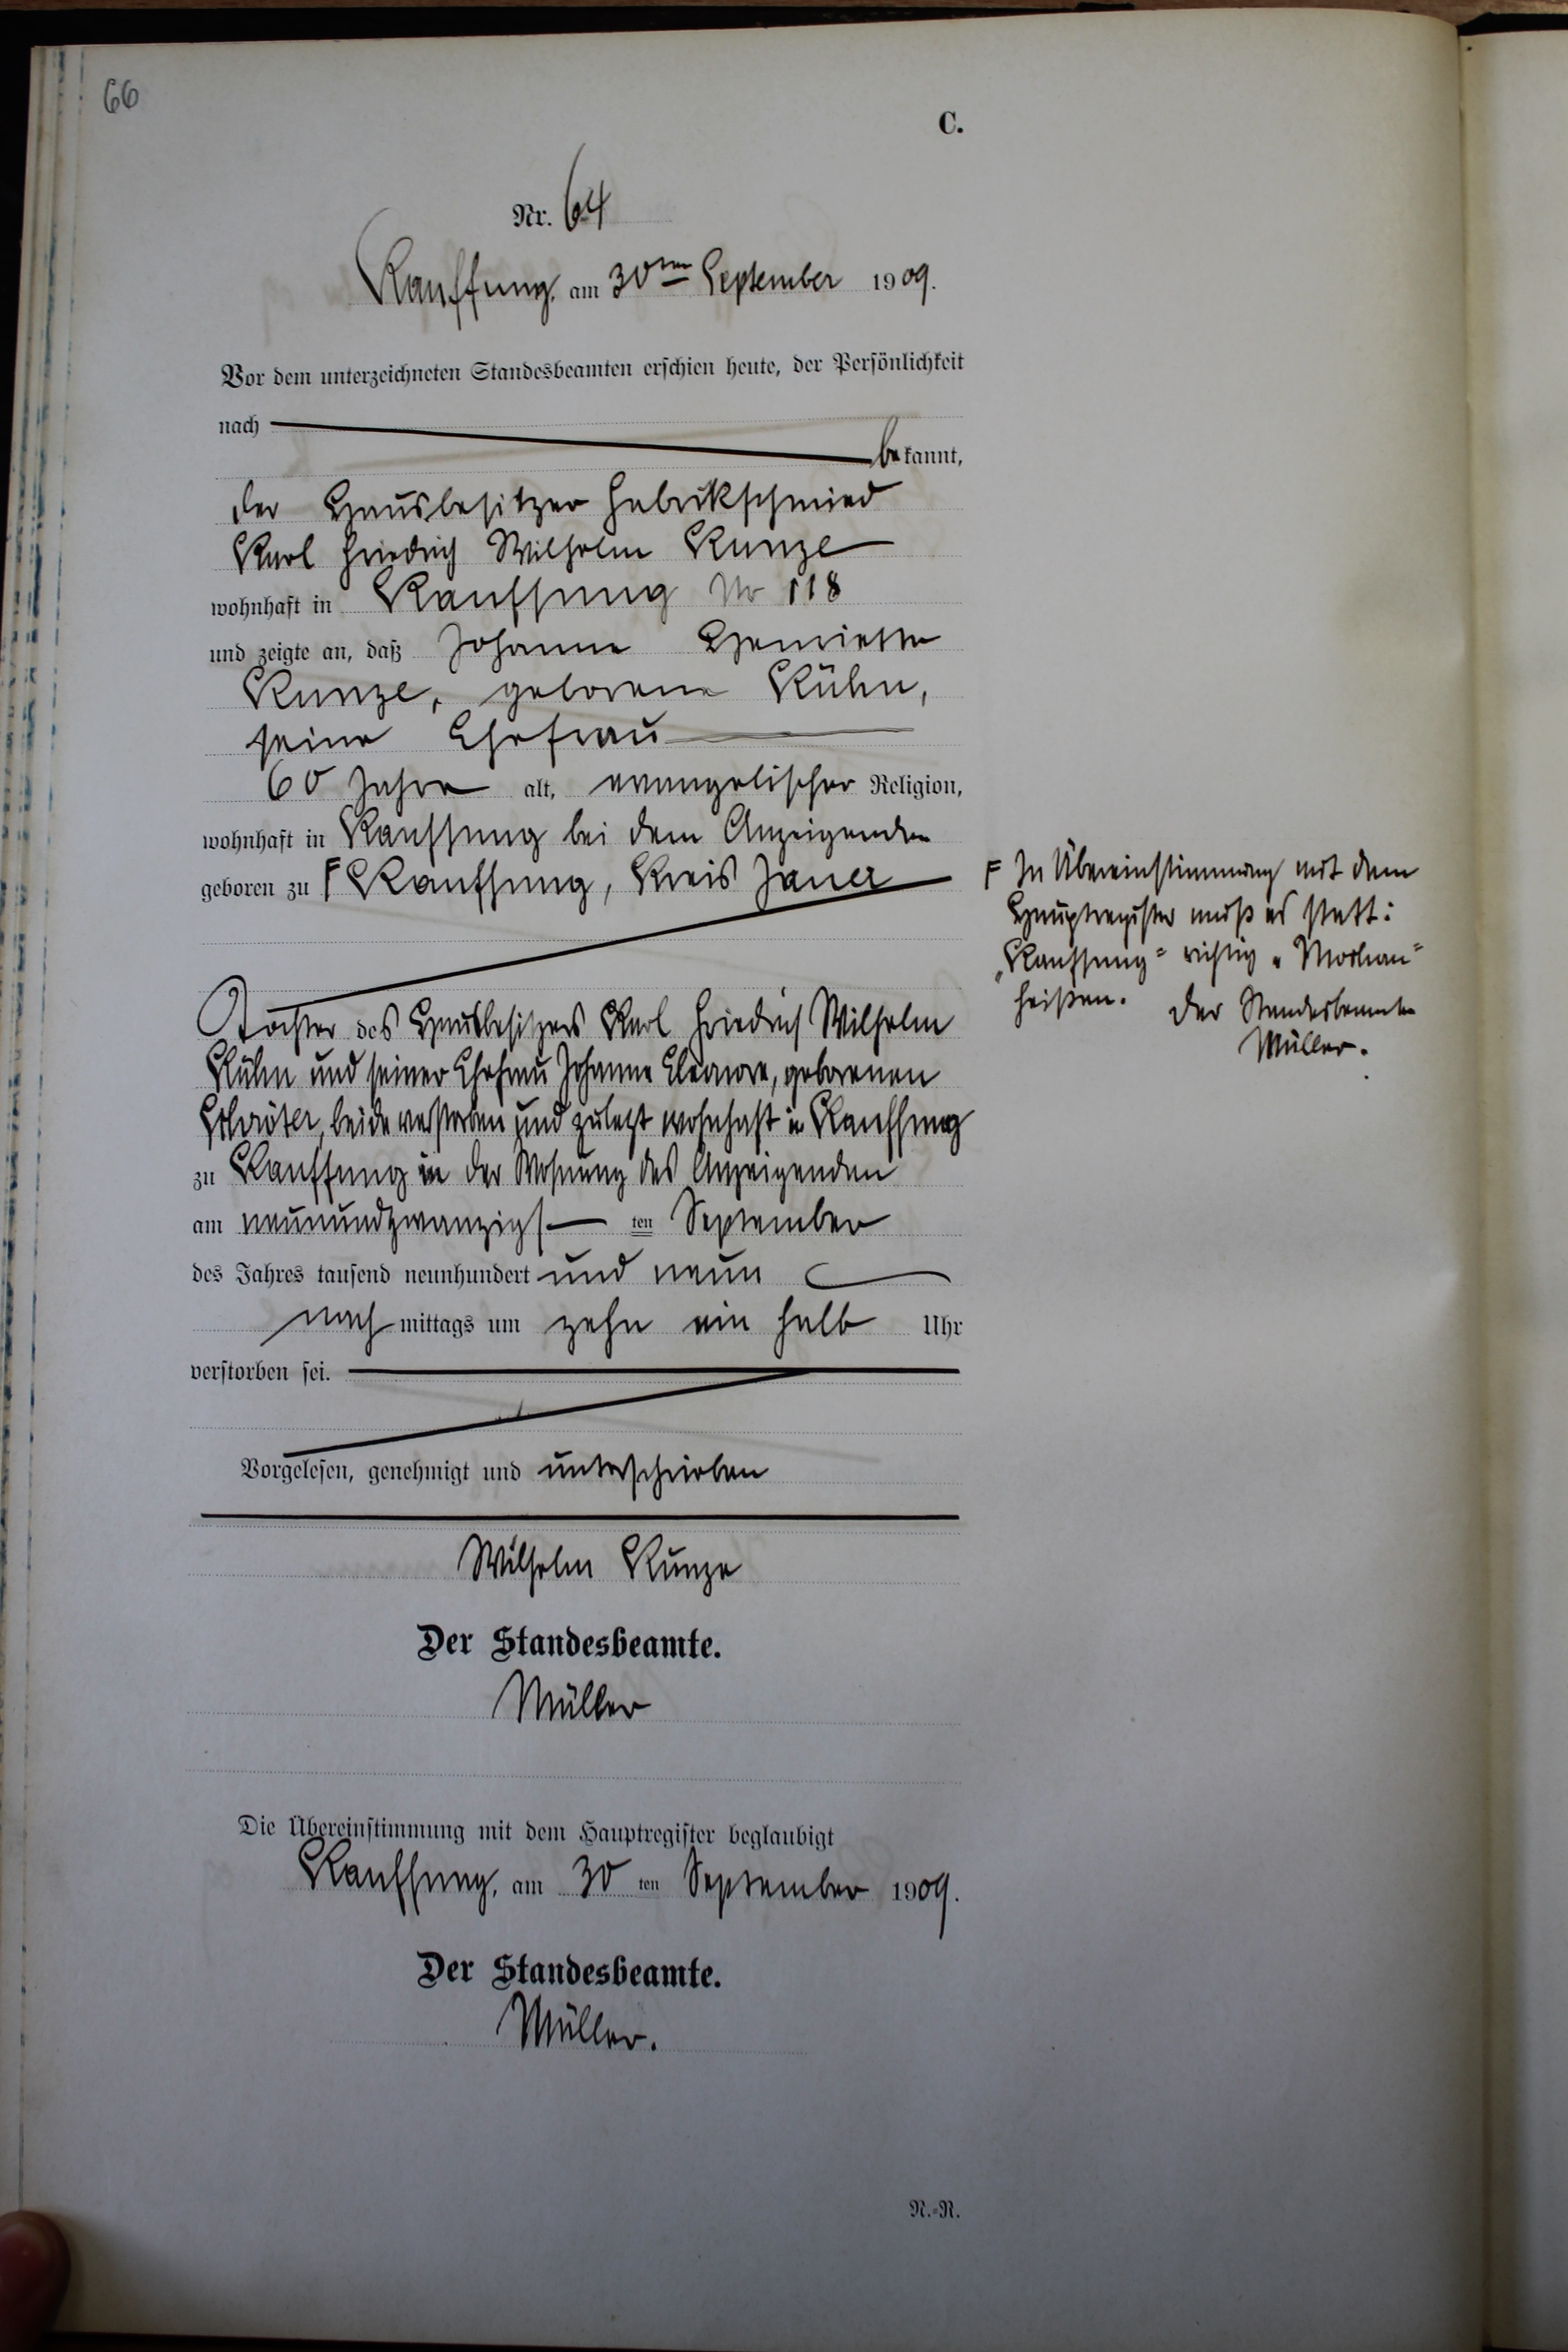 66
C.
Nr. 64
Kauffung, am 30ten September 1909.
Vor dem unterzeichneten Standesbeamten erschien heute, der Persönlichkeit
nach
bekannt,
der Hausbesitzer Fabrikschmied
Karl Friedrich Wilhelm Kunze
wohnhaft in Kauffung No 118
und zeigte an, daß Johanne Henriette
Kunze, geborene Kühn,
seine Ehefrau
60 Jahre alt, evangelischer Religion,
wohnhaft in Kauffung bei dem Anzeigenden
geboren zu F Kauffung, Kreis Jauer
Tochter des Hausbesitzers Karl Friedrich Wilhelm
Kühn und seiner Ehefrau Johanne Eleonore, geborenen
Schröter, beide verstorben und zuletzt wohnhaft in Kauffung
zu Kauffung in der Wohnung des Anzeigenden
am neunundzwanzigsten September
des Jahres tausend neunhundert und neun
nachmittags um zehn ein halb Uhr
verstorben sei.
Vorgelesen, genehmigt und unterschrieben
Wilhelm Kunze
Der Standesbeamte.
Müller
Die Übereinstimmung mit dem Hauptregister beglaubigt
Kauffung, am 30 ten September 1909.
Der Standesbeamte.
Müller.
N.-R.
F In Übereinstimmung mit dem
Hauptregister muß es statt:
„Kauffung" richtig „Mochau"
heißen. Der Standesbeamte
Müller.